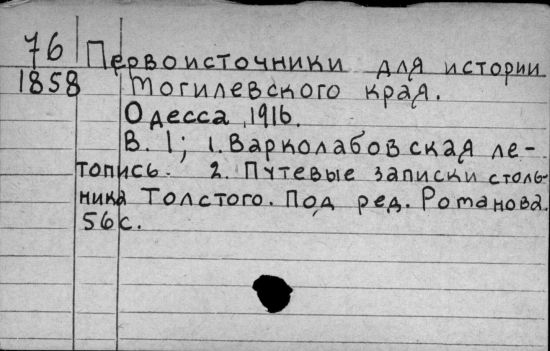 76 Первоисточники для истории
1858 Могилевского края.
Одесса, 1916.
В. 1; 1. Варколабовская ле-
топись. 2. Путевые записки столь-
ника Толстого. Под ред. Романова.
56 с.